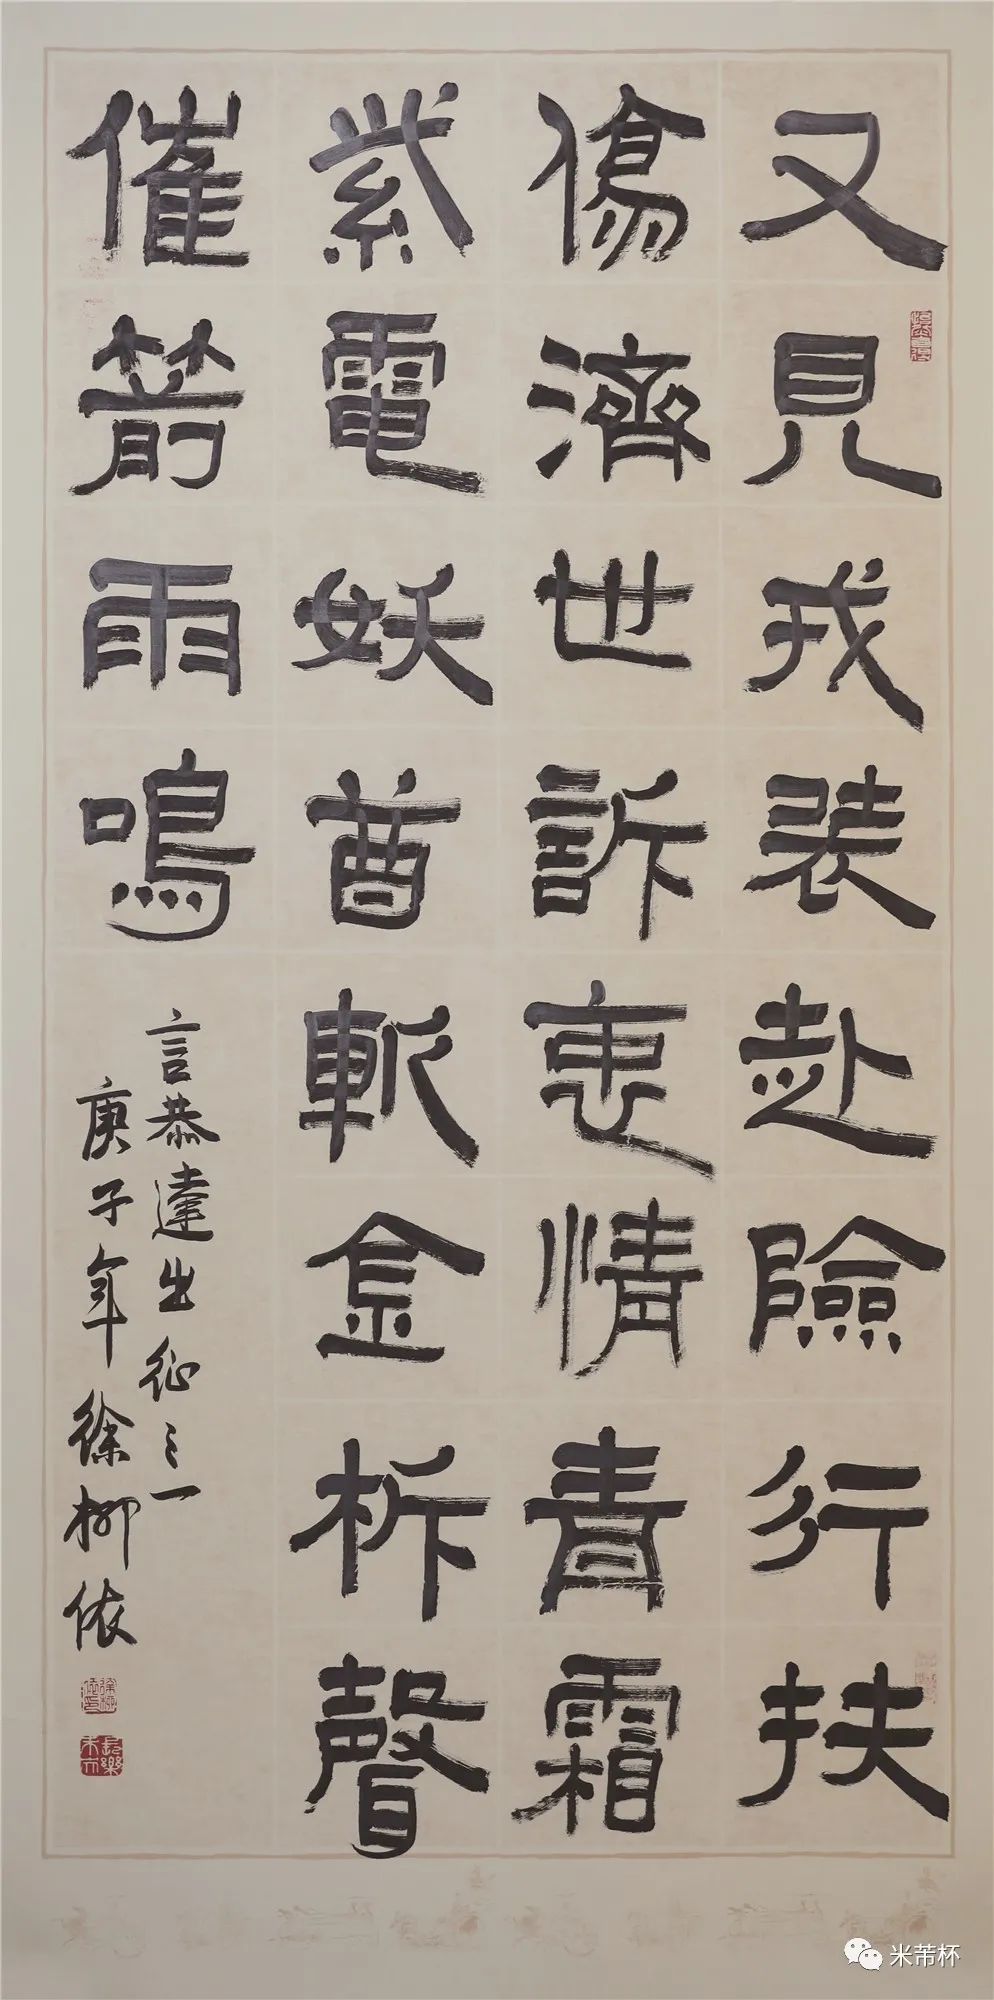 又見戎裝赴險行扶
傷濟世訴衷情青霜
紫電妖酋斬金柝聲
催箭雨鳴
言恭達出征之一
庚子年徐柳依
米芾杯